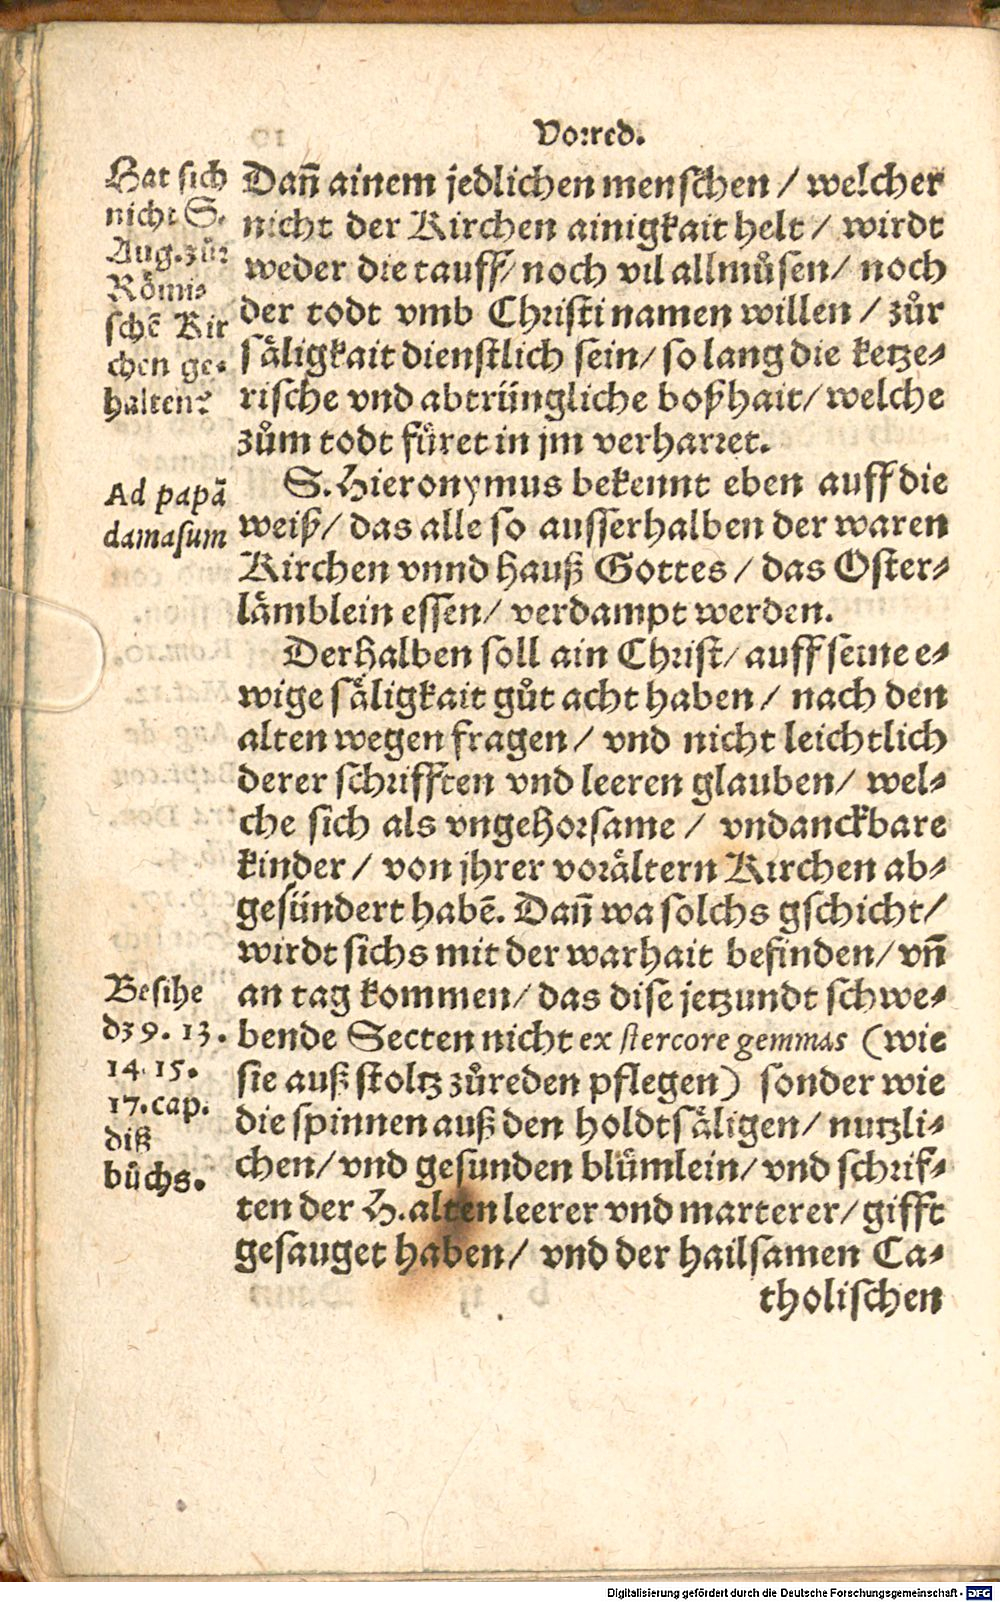 Vorred.
Hat sich
nicht S.
Aug. zůr
Römi-
schē Kir
chen ge-
halten?
Dañ ainem jedlichen menschen / welcher
nicht der Kirchen ainigkait helt / wirdt
weder die tauff / noch vil allmůsen / noch
der todt vmb Christi namen willen / zůr
säligkait dienstlich sein / so lang die ketze-
rische vnd abtrüngliche boßhait / welche
zům todt füret in jm verharret.
Ad papā
damasum
S. Hieronymus bekennt eben auff die
weiß / das alle so ausserhalben der waren
Kirchen vnnd hauß Gottes / das Oster-
lämblein essen / verdampt werden.
Derhalben soll ain Christ / auff seine e-
wige säligkait gůt acht haben / nach den
alten wegen fragen / vnd nicht leichtlich
derer schrifften vnd leeren glauben / wel-
che sich als vngehorsame / vndanckbare
kinder / von jhrer vorältern Kirchen ab-
gesündert habē. Dañ wa solchs gschicht /
wirdt sichs mit der warhait befinden / vñ
an tag kommen / das dise jetzundt schwe-
bende Secten nicht ex stercore gemmas (wie
sie auß stoltz zůreden pflegen) sonder wie
die spinnen auß den holdtsäligen / nutzli-
chen / vnd gesunden blümlein / vnd schrif-
ten der H. alten leerer vnd marterer / gifft
gesauget haben / vnd der hailsamen Ca-
Besihe
dz 9. 13.
14. 15.
17. cap.
diß
bůchs.
tholischen
Digitalisierung gefördert durch die Deutsche Forschungsgemeinschaft - DFG